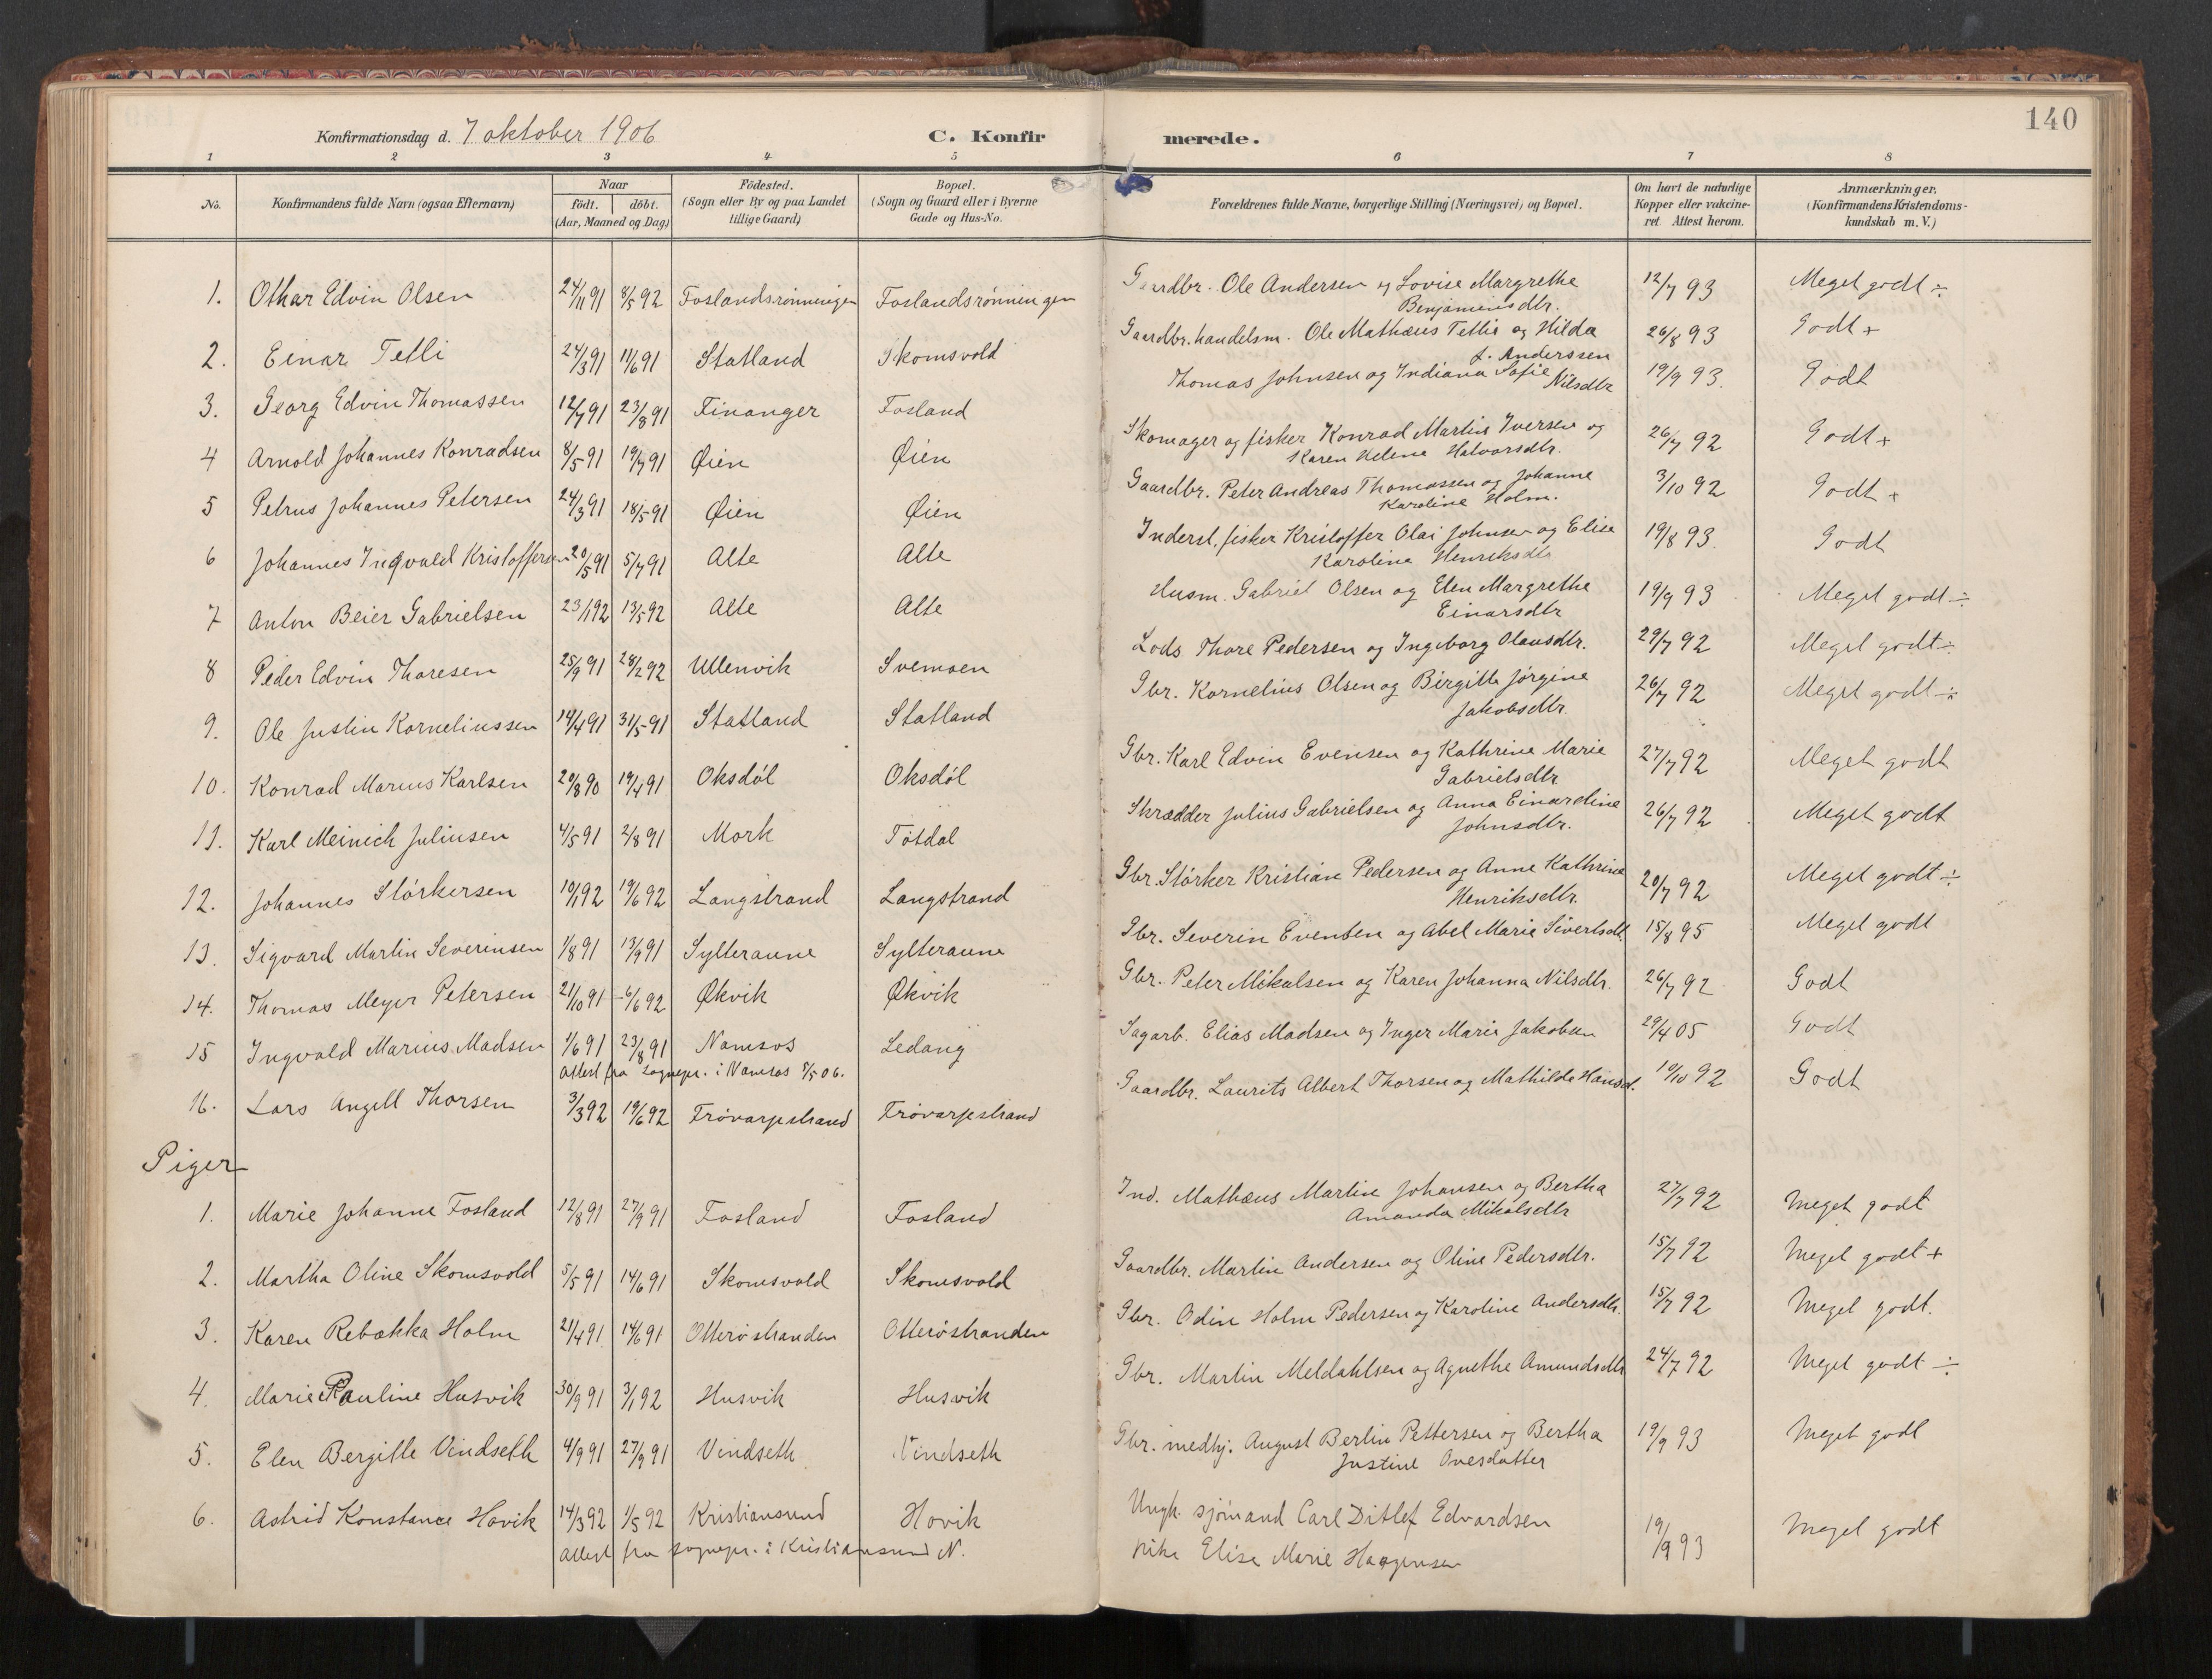 140
Konfirmationsdag d. 7 oktober 1906
C. Konfirmerede.
1 2 3 4 5 6 7 8
No.
Konfirmandens fulde Navn (ogsaa Efternavn)
Naar
födt. döbt.
(Aar, Maaned og Dag)
Födested.
(Sogn eller By og paa Landet
tillige Gaard)
Bopæl.
(Sogn og Gaard eller i Byerne
Gade og Hus-No.
Forældrenes fulde Navne, borgerlige Stilling (Næringsvei) og Bopæl.
Om havt de naturlige
Kopper eller vakcine-
ret. Attest herom.
Anmærkninger.
(Konfirmandens Kristendoms-
kundskab m. V.)
1. Othar Edvin Olsen 24/11 91 8/5 92 Foslandsrønningen Foslandsrønningen Gaardbr. Ole Andersen og Lovise Margrethe 12/7 93 Meget godt ÷
Benjaminsdtr.
2. Einar Tetli 24/3 91 11/6 91 Statland Skomsvold Gaardbr. handelsm. Ole Mathæus Tetlie og Hilda 26/8 93 Godt +
L. Anderssen
3. Georg Edvin Thomassen 12/7 91 23/8 91 Finanger Fosland Thomas Johnsen og Indiana Sofie 19/9 93. Godt
Nilsdtr
4 Arnold Johannes Konradsen 8/5 91 19/7 91 Øien Øien Skomager og fisker Konrad Martin Iversen og 26/7 92 Godt +
Karen Helene Halvorsdtr.
5 Petrus Johannes Petersen 24/3 91 18/5 91 Øien Øien Gaardbr. Peter Andreas Thomassen og Johanne 3/10 92 Godt +
Karoline Holm.
6 Johannes Ingvald Kristoffersen 20/5 91 5/7 91 Alte Alte Inderst, fisker Kristoffer Olai Johnsen og Elise 19/8 93. Godt
Karoline Henriksdtr
7 Anton Beier Gabrielsen 23/1 92 13/5 92 Alte Alte Husm. Gabriel Olsen og Elen Margrethe 19/9 93 Meget godt ÷
Einarsdtr
8 Peder Edvin Thoresen 25/9 91 28/2 92 Ullenvik Svemoen Lods Thore Pedersen og Ingeborg Olausdtr. 29/7 92 Meget godt ÷
9. Ole Justin Korneliussen 14/4 91 31/5 91 Statland Statland Gbr. Kornelius Olsen og Birgitte Jørgine 26/7 92 Meget godt ÷
Jakobsdtr.
10. Konrad Marius Karlsen 20/8 90 19/4 91 Oksdøl Oksdøl Gbr. Karl Edvin Evensen og Kathrine Marie 27/7 92 Meget godt
Gabrielsdtr
11. Karl Meinich Juliusen 4/5 91 2/8 91 Mork Tøtdal Skrædder Julius Gabrielsen og Anna Einardine 26/7 92 Meget godt
Johnsdtr.
12. Johannes Størkersen 10/1 92 19/6 92 Langstrand Langstrand Gbr. Størker Kristian Pedersen og Anne Kathrine 20/7 92 Meget godt ÷
Henriksdtr.
13. Sigvard Martin Severinsen 1/8 91 13/9 91 Sylteraune Sylteraune Gbr. Severin Evensen og Abel Marie Sivertsdt. 15/8 95 Meget godt
14. Thomas Meyer Petersen 21/10 91 6/6 92 Økvik Økvik Gbr. Peter Mikalsen og Karen Johanna Nilsdtr. 26/7 92 Godt
15 Ingvald Marius Madsen 1/6 91 23/8 91 Namsos Ledang Sagarb. Elias Madsen og Inger Marie Jakobsen 29/4 05 Godt
attest fra sognepr. i Namsos 5/5 06.
16. Lars Angell Thorsen 3/3 92 19/6 92 Frøvarpstrand Frøvarpstrand Gaardbr. Laurits Albert Thorsen og Mathilde Hansd. 19/10 92 Godt
Piger
1. Marie Johanne Fosland 12/8 91 27/9 91 Fosland Fosland Ind. Mathæus Martin Johansen og Bertha 27/7 92 Meget godt
Amanda Mikalsdtr
2. Martha Oline Skomsvold 5/5 91 14/6 91 Skomsvold Skomsvold Gaardbr. Martin Andersen og Oline Pedersdtr. 15/7 92 Meget godt +
3. Karen Rebækka Holm 21/4 91 14/6 91 Otterøstranden Otterøstranden Gbr. Odin Holm Pedersen og Karoline Andersdtr. 15/7 92 Meget godt.
4. Marie Pauline Husvik 30/9 91 3/1 92 Husvik Husvik Gbr. Martin Meldahlsen og Agnethe Amundsdtr 24/7 92 Meget godt ÷
5. Elen Bergitte Vindseth 4/9 91 27/9 91 Vindseth Vindseth Gbr. medhj. August Berlin Pettersen og Bertha 19/9 93 Meget godt
Justine Ovesdatter
6. Astrid Konstance Hovik 14/3 92 1/5 92 Kristiansund Hovik Ungk. sjømand Carl Ditlef Edvardsen 19/9 93 Meget godt
attest fra sognepr. i Kristiansund N. pike Elise Marie Haagensen